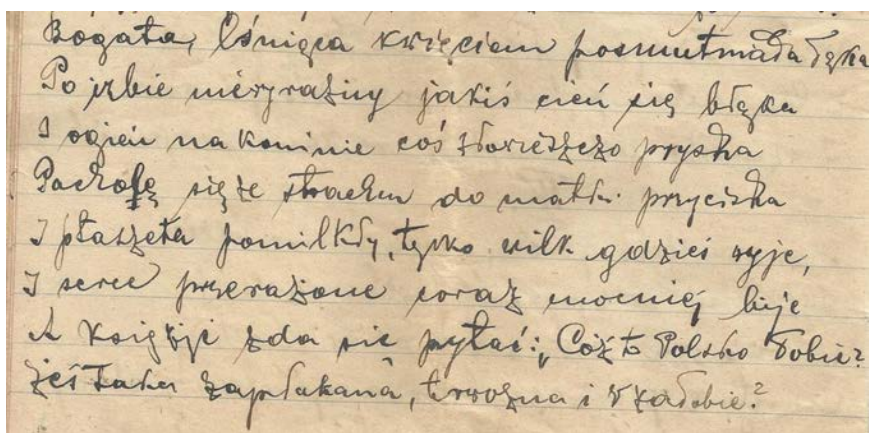 Bogata, lśniąca kwięciem posmutniała łąka
Po izbie niewyraźny jakiś cień się błąka
I ogień na kominie coś złowieszczo pryska
Pacholę się ze strachem do matki przyciska
I ptaszęta pomilkły, tylko wilk gdzieś wyje,
I serce przerażone coraz mocniej bije
A księżyc zda się pytać: „Cóż to Polsko Tobie?
Żeś taka zapłakana, trwożna i w żałobie?